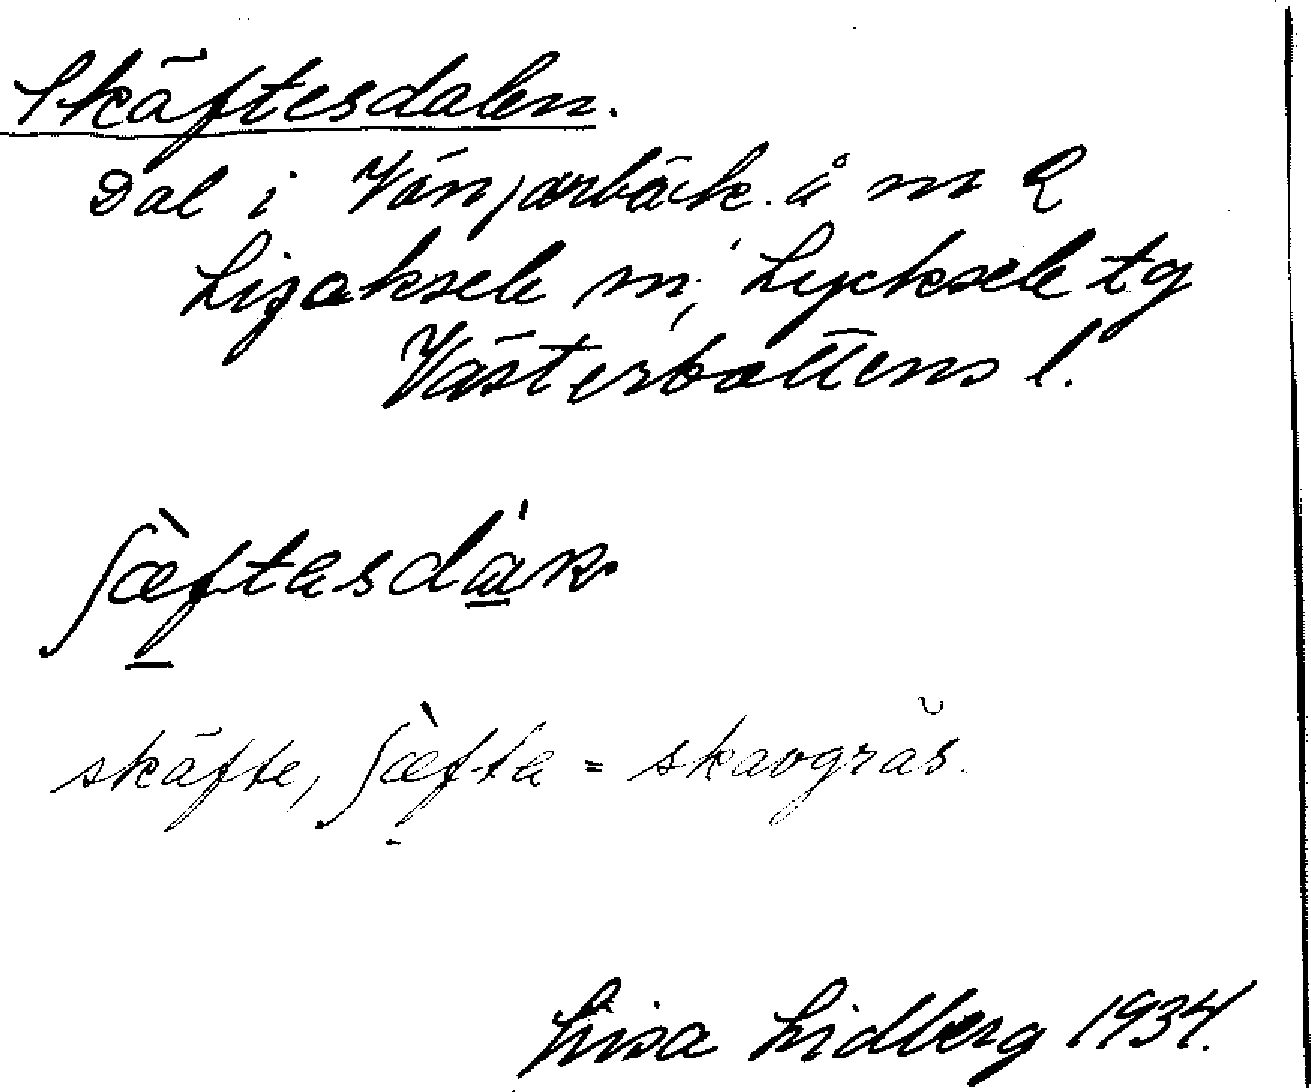 Skäftesdalen.
Dal i Vänjarbäck. å m R
Ljusaksele m; Lycksele tg
Västerbottens l.
ʃæ̀ftasdàꞥ
skäfte, ʃæ̀fta = skavgräs.
Lisa Lidberg 1934.